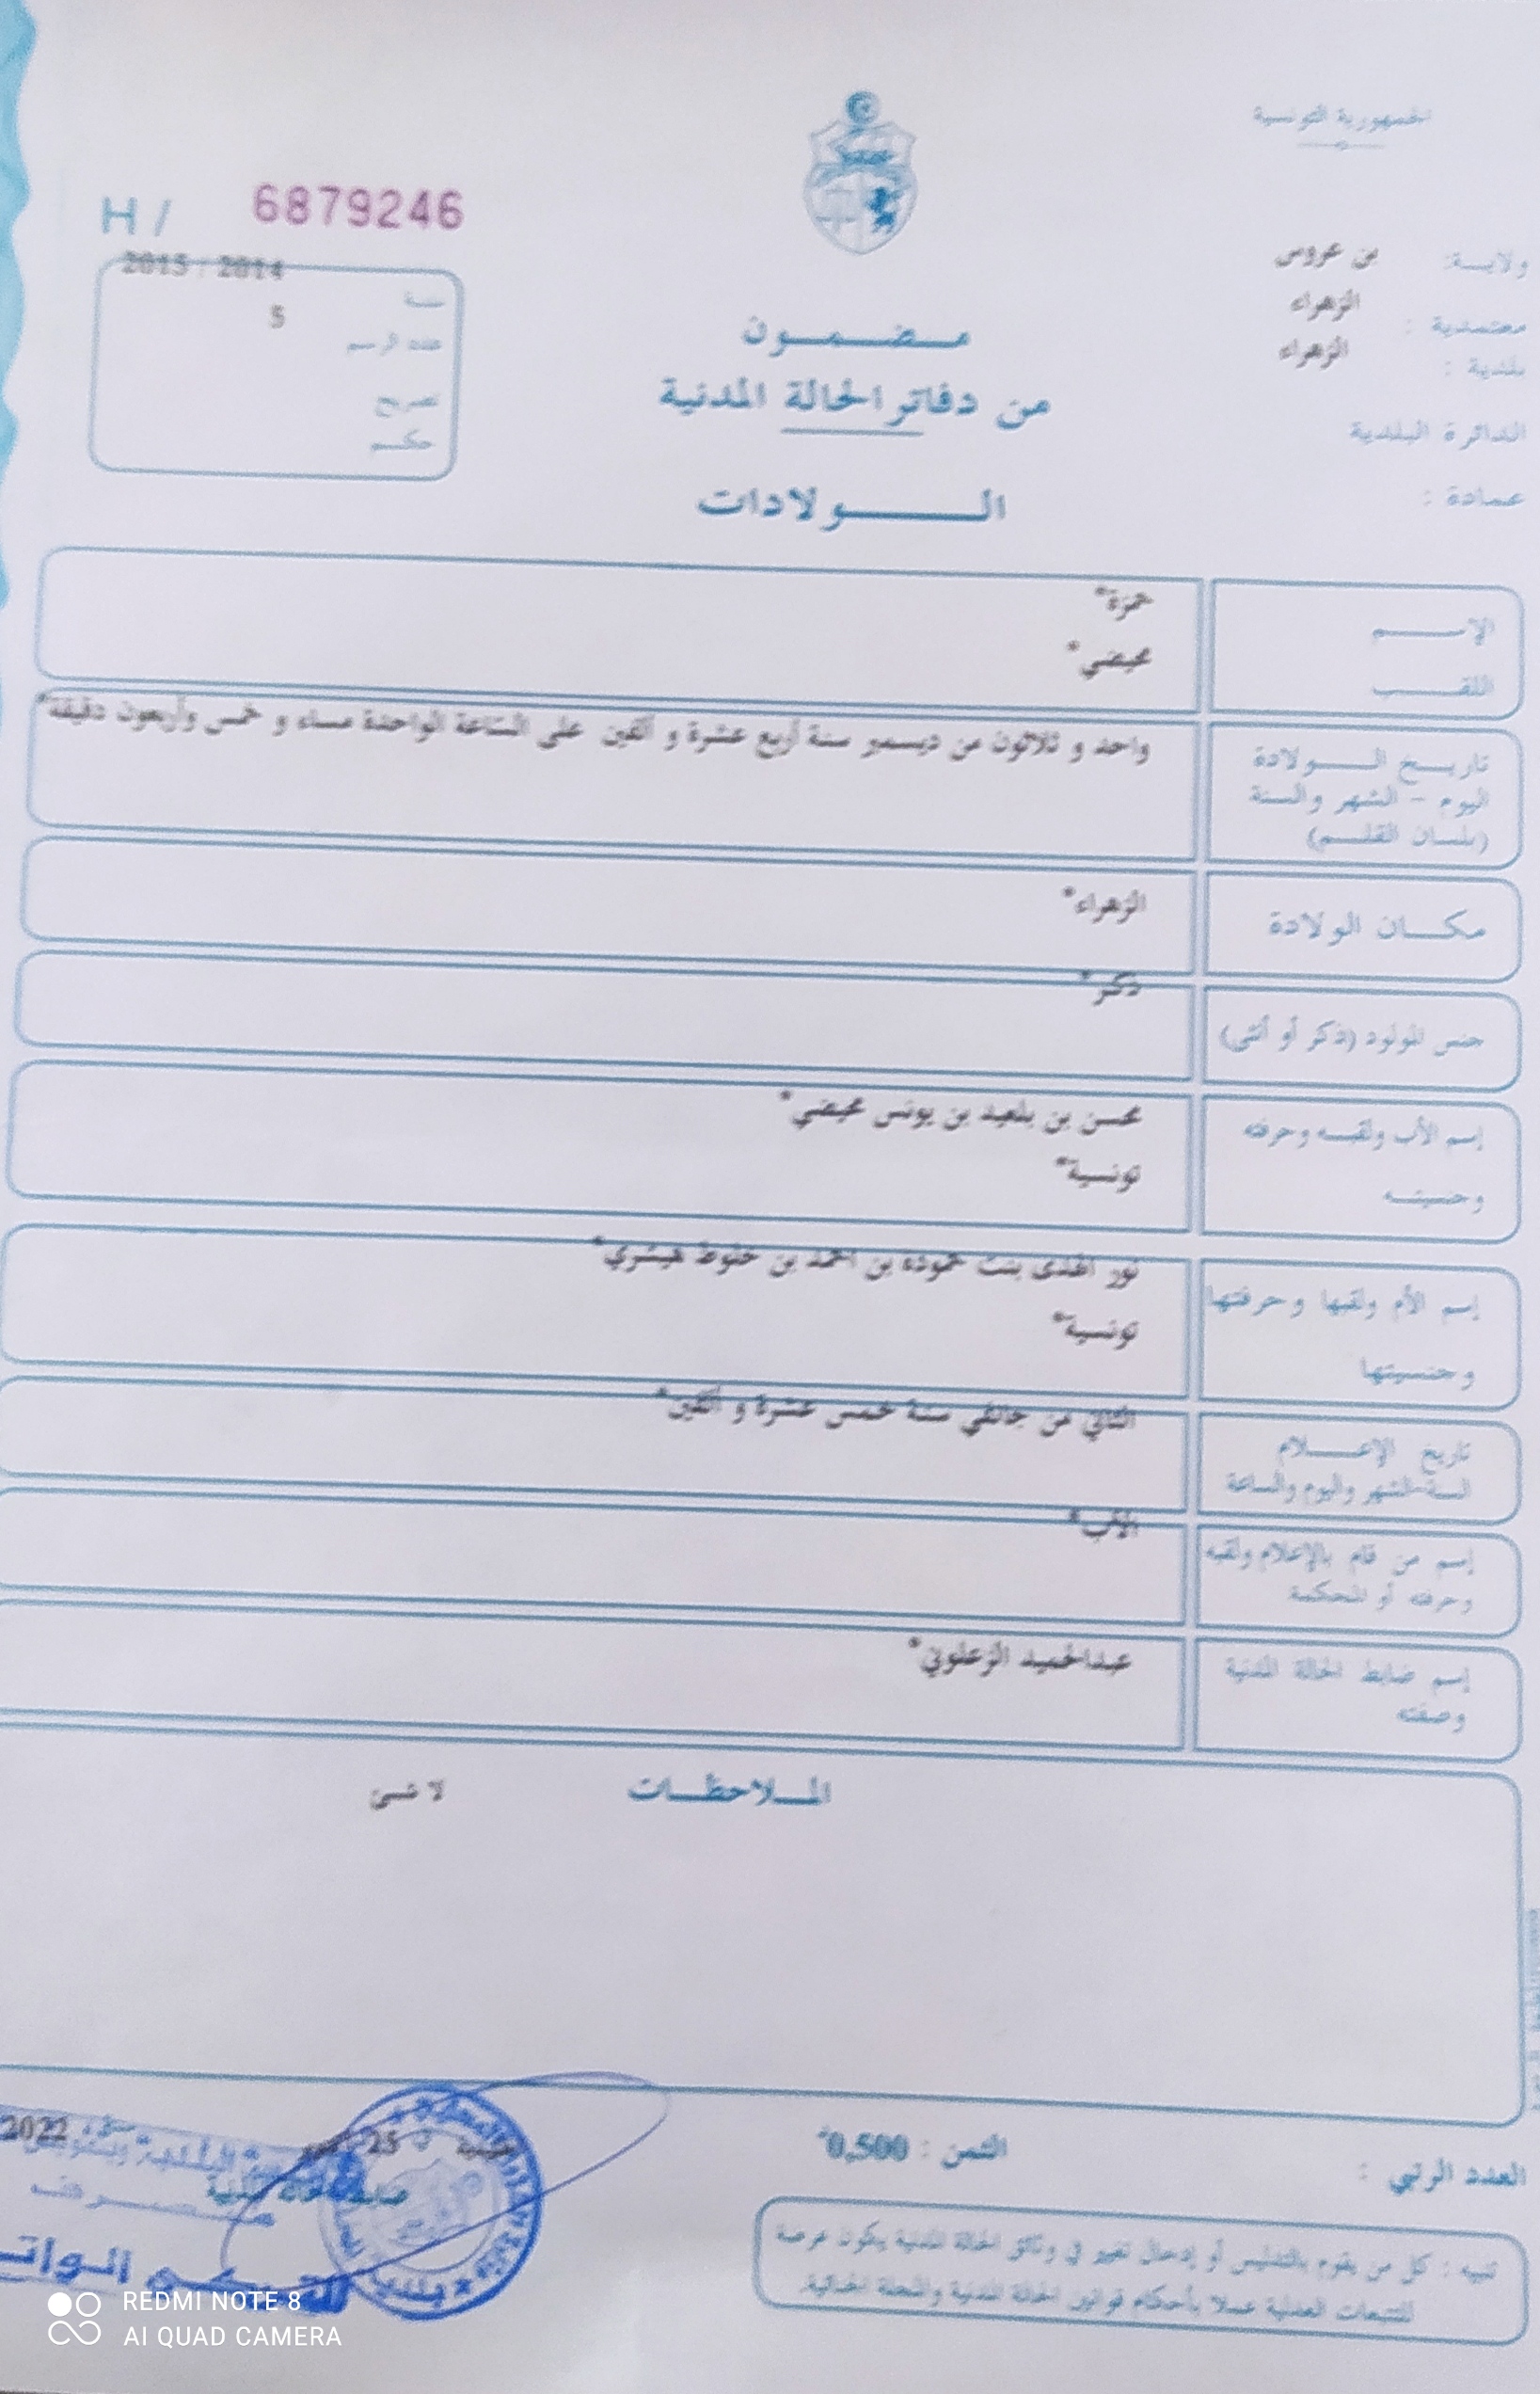 الجمهورية التونسية
H / 6879246
ولاية: بن عروس
معتمدية : الزهراء
بلدية : الزهراء
الدائرة البلدية
عمادة :
2015 / 2014
سنة
5
عدد الرسم
تصريح
حكم
مضمون
من دفاتر الحالة المدنية
الولادات
الإسم حمزة*
اللقب
تاريخ الولادة
اليوم - الشهر والسنة
(بلسان القلم)
واحد و ثلاثون من ديسمبر سنة أربع عشرة و ألفين على الساعة الواحدة مساء و خمس وأربعون دقيقة*
مكان الولادة الزهراء*
جنس المولود (ذكر أو أنثى) ذكر*
إسم الأب ولقبه وحرفته
وجنسيته
محسن بن بلعيد بن يونس
تونسية*
إسم الأم ولقبها وحرفتها
وجنسيتها
نور الهدى بنت حمودة بن احمد بن
تونسية*
تاريخ الإعلام
السنة-الشهر واليوم والساعة
الثاني من جانفي سنة خمس عشرة و ألفين*
إسم من قام بالإعلام ولقبه
وحرفته أو المحكمة
الأب*
إسم ضابط الحالة المدنية
وصفته
عبدالحميد الزعلوني*
الملاحظات لا شئ
العدد الرتبي :
الثمن : 0,500د
25 2022
ضابط الحالة المدنية
تنبيه : كل من يقوم بالتدليس أو إدخال تغيير في وثائق الحالة المدنية يكون عرضة
للتتبعات العدلية عملا بأحكام قوانين الحالة المدنية والمجلة الجنائية.
REDMI NOTE 8
AI QUAD CAMERA